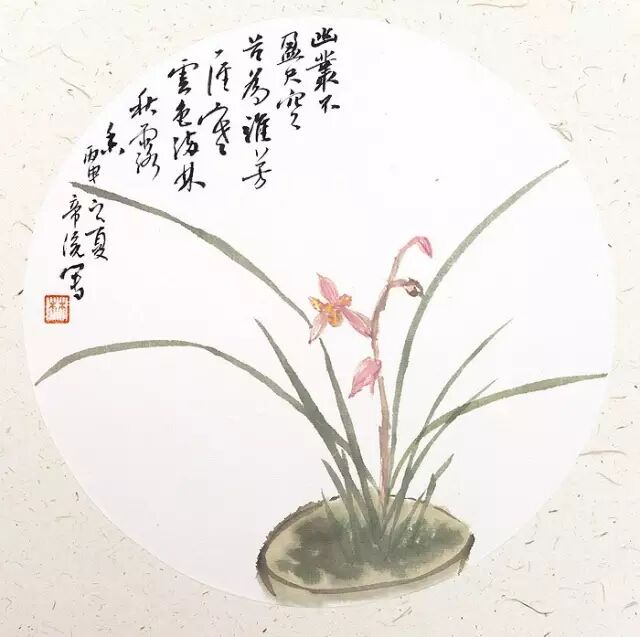 幽叢不
盈尺空
谷為誰芳
一徑寒
雲色滿林
秋露
香
丙申之夏
寫